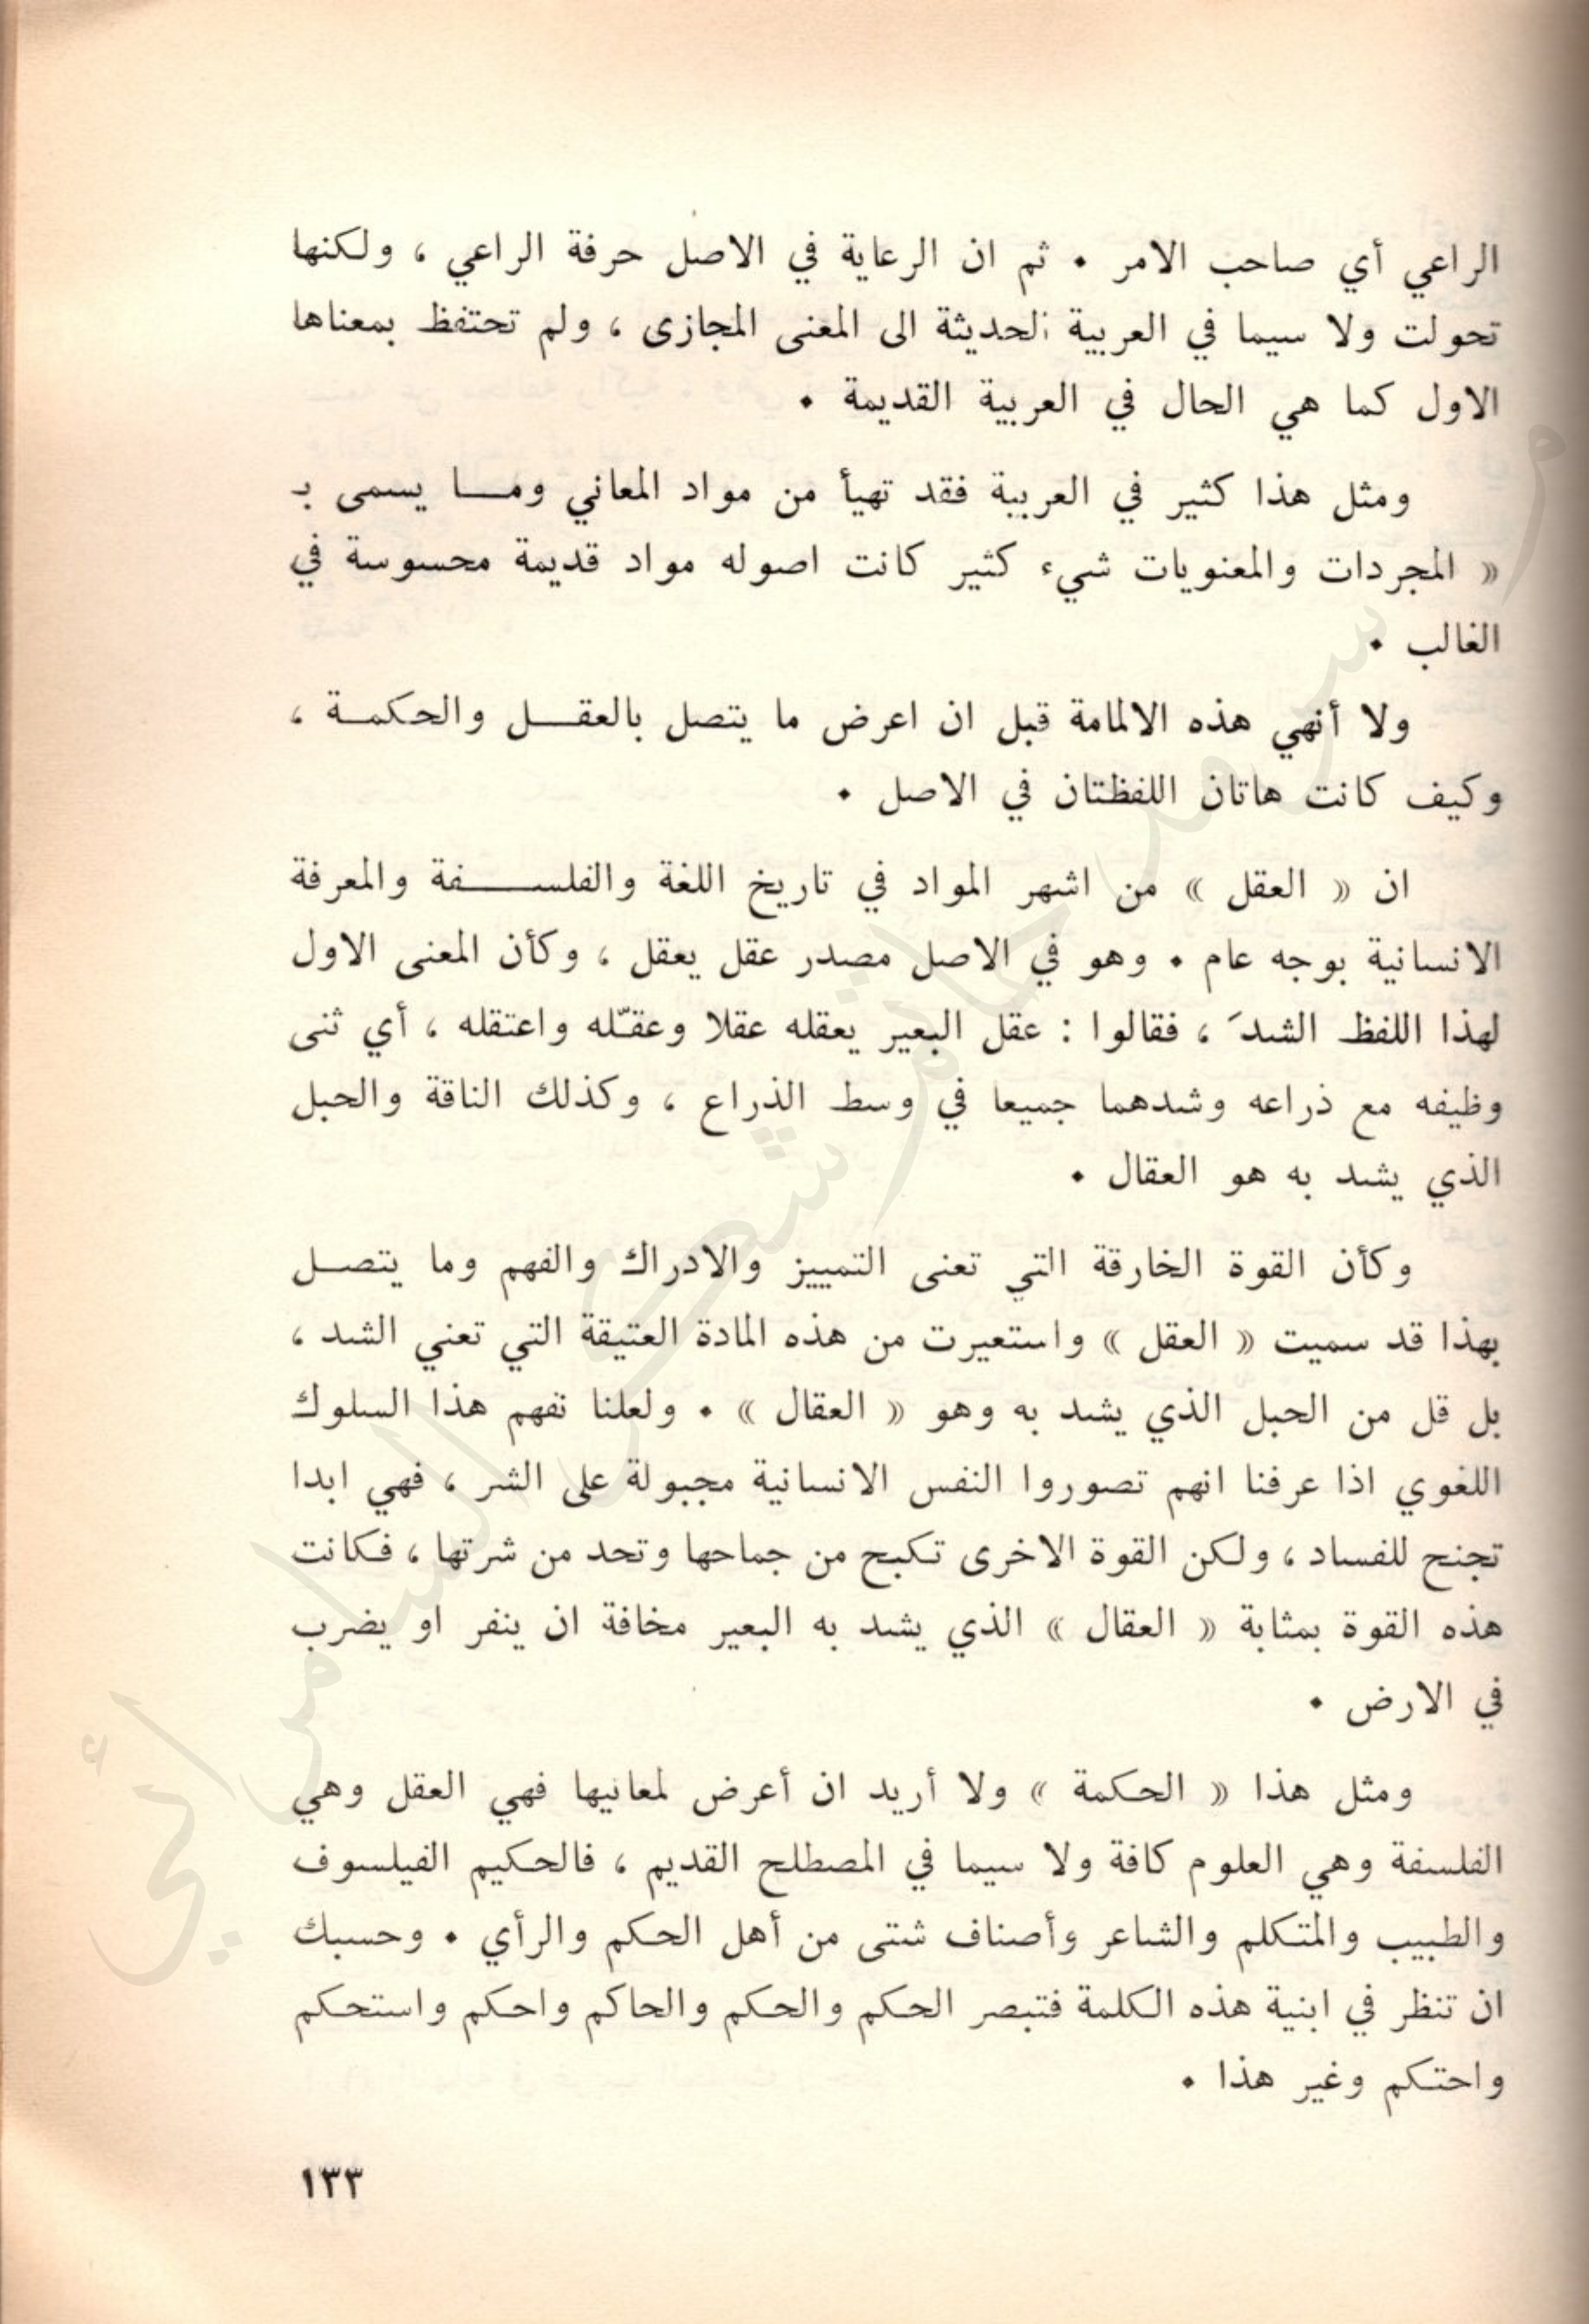 الراعي أي صاحب الامر ٠ ثم ان الرعاية في الاصل حرفة الراعي ، ولكنها
تحولت ولا سيما في العربية الحديثة الى المعنى المجازى ، ولم تحتفظ بمعناها
الاول كما هي الحال في العربية القديمة ٠
ومثل هذا كثير في العربية فقد تهيأ من مواد المعاني ومـــا يسمى بـ
« المجردات والمعنويات شيء كثير كانت اصوله مواد قديمة محسوسة في
الغالب ٠
ولا أنهي هذه الالمامة قبل ان اعرض ما يتصل بالعقـــل والحكمــة ،
وكيف كانت هاتان اللفظتان في الاصل ٠
ان « العقل » من اشهر المواد في تاريخ اللغة والفلســـــفة والمعرفة
الانسانية بوجه عام ٠ وهو في الاصل مصدر عقل يعقل ، وكأن المعنى الاول
لهذا اللفظ الشدَ ، فقالوا : عقل البعير يعقله عقلا وعقـّله واعتقله ، أي ثنى
وظيفه مع ذراعه وشدهما جميعا في وسط الذراع ، وكذلك الناقة والحبل
الذي يشد به هو العقال ٠
وكأن القوة الخارقة التي تعنى التمييز والادراك والفهم وما يتصــل
بهذا قد سميت « العقل » واستعيرت من هذه المادة العتيقة التي تعني الشد ،
بل قل من الحبل الذي يشد به وهو « العقال » ٠ ولعلنا تفهم هذا السلوك
اللغوي اذا عرفنا انهم تصوروا النفس الانسانية مجبولة على الشر ، فهي ابدا
تجنح للفساد ، ولكن القوة الاخرى تكبح من جماحها وتحد من شرتها ، فكانت
هذه القوة بمثابة « العقال » الذي يشد به البعير مخافة ان ينفر او يضرب
في الارض ٠
ومثل هذا « الحكمة » ولا أريد ان أعرض لمعانيها فهي العقل وهي
الفلسفة وهي العلوم كافة ولا سيما في المصطلح القديم ، فالحكيم الفيلسوف
والطبيب والمتكلم والشاعر وأصناف شتى من أهل الحكم والرأي ٠ وحسبك
ان تنظر في ابنية هذه الكلمة فتبصر الحكم والحكم والحاكم واحكم واستحكم
واحتكم وغير هذا ٠
١٣٣
سرمد حاتم شكر السامرائي